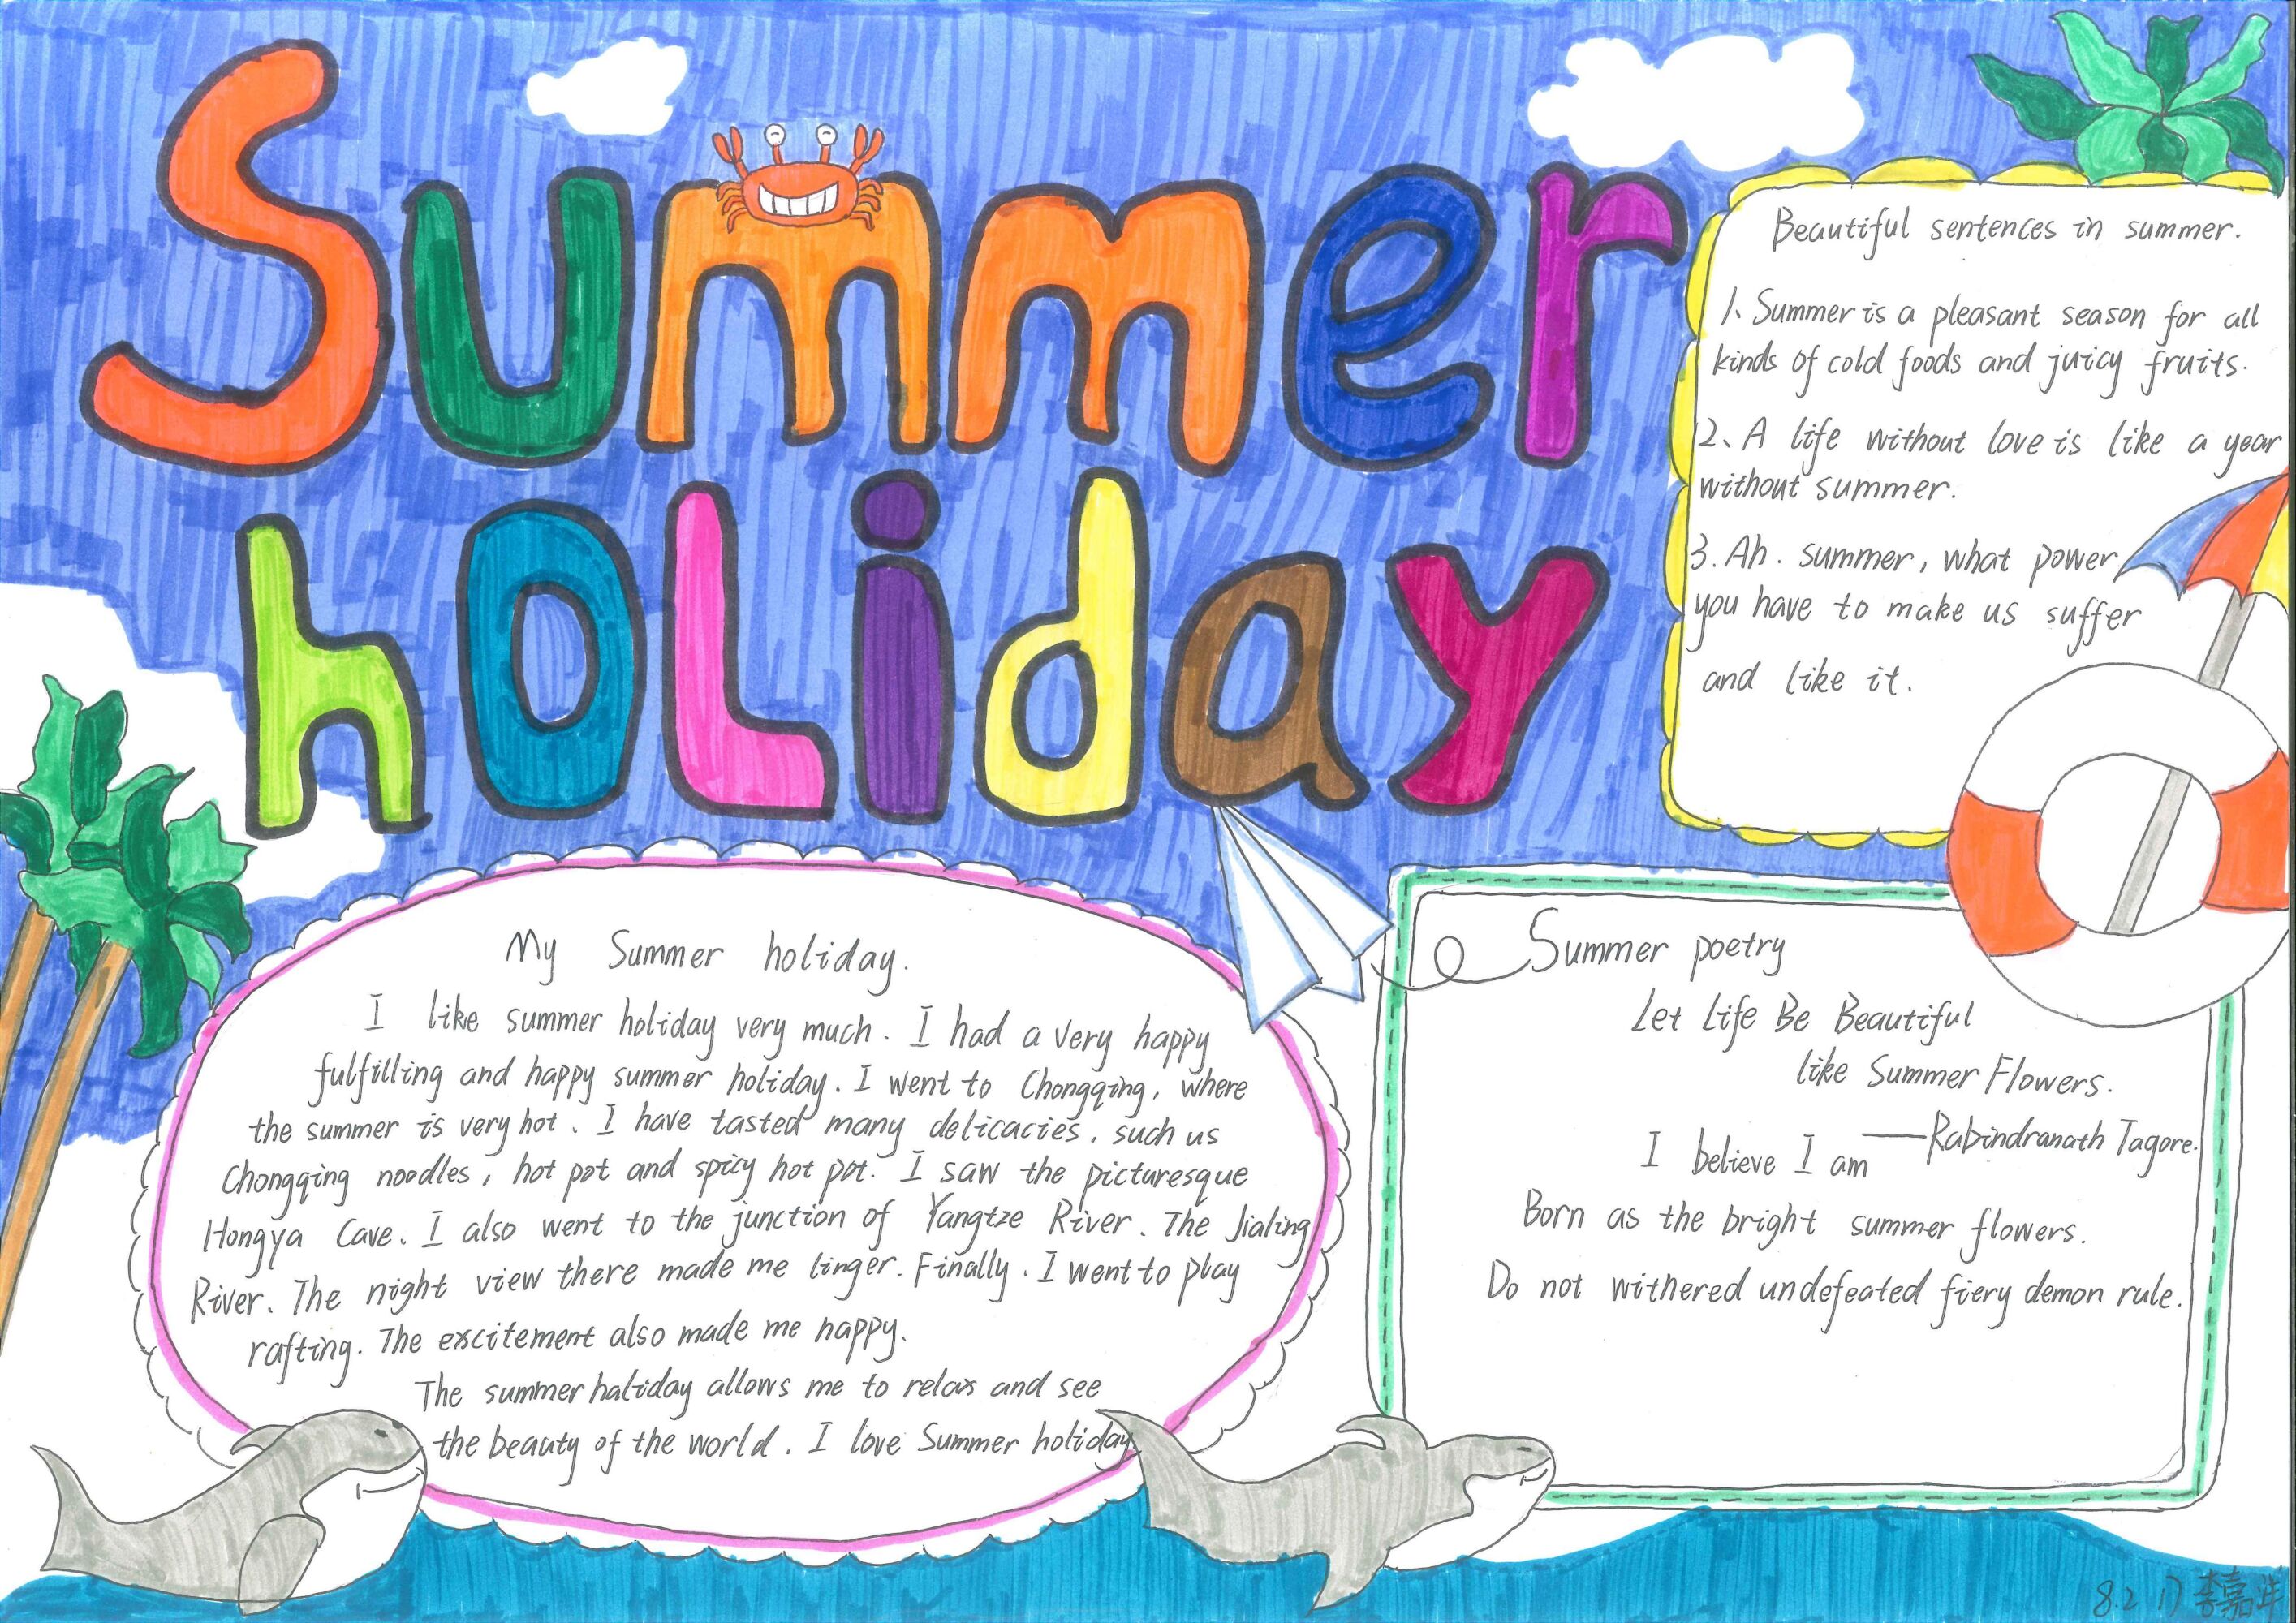 Summer
hoLiday
Beautiful sentences in summer.
1、Summer is a pleasant season for all
kinds of cold foods and juicy fruits.
2、A life without love is like a year
without summer.
3. Ah. summer, what power
you have to make us suffer
and like it.
My Summer holiday.
I like summer holiday very much. I had a very happy
fulfilling and happy summer holiday. I went to Chongqing, where
the summer is very hot. I have tasted many delicacies, such us
Chongqing noodles, hot pot and spicy hot pot. I saw the picturesque
Hongya Cave. I also went to the junction of Yangtze River. The Jialing
River. The night view there made me linger. Finally. I went to play
rafting. The excitement also made me happy.
The summer haliday allows me to relax and see
the beauty of the world. I love Summer holiday
Summer poetry
Let Life Be Beautiful
like Summer Flowers.
——Rabindranath Tagore.
I believe I am
Born as the bright summer flowers.
Do not withered undefeated fiery demon rule.
8.2 17 李嘉